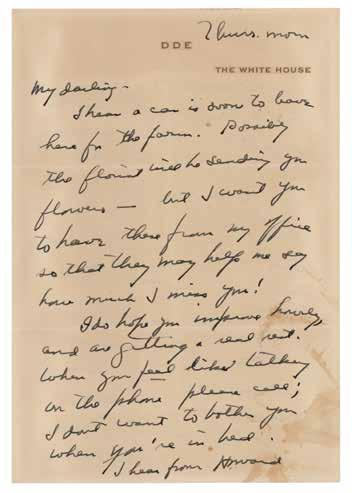 Thurs. morn
DDE
THE WHITE HOUSE
My darling -
I hear a car is soon to leave
here for the farm. Possibly
the florist will be sending you
flowers — but I want you
to have these from my office
so that they may help me say
how much I miss you!
I do hope you improve hourly
and are getting a real rest.
When you feel like talking
on the phone please call;
I don't want to bother you
when you're in bed.
I hear from Howard